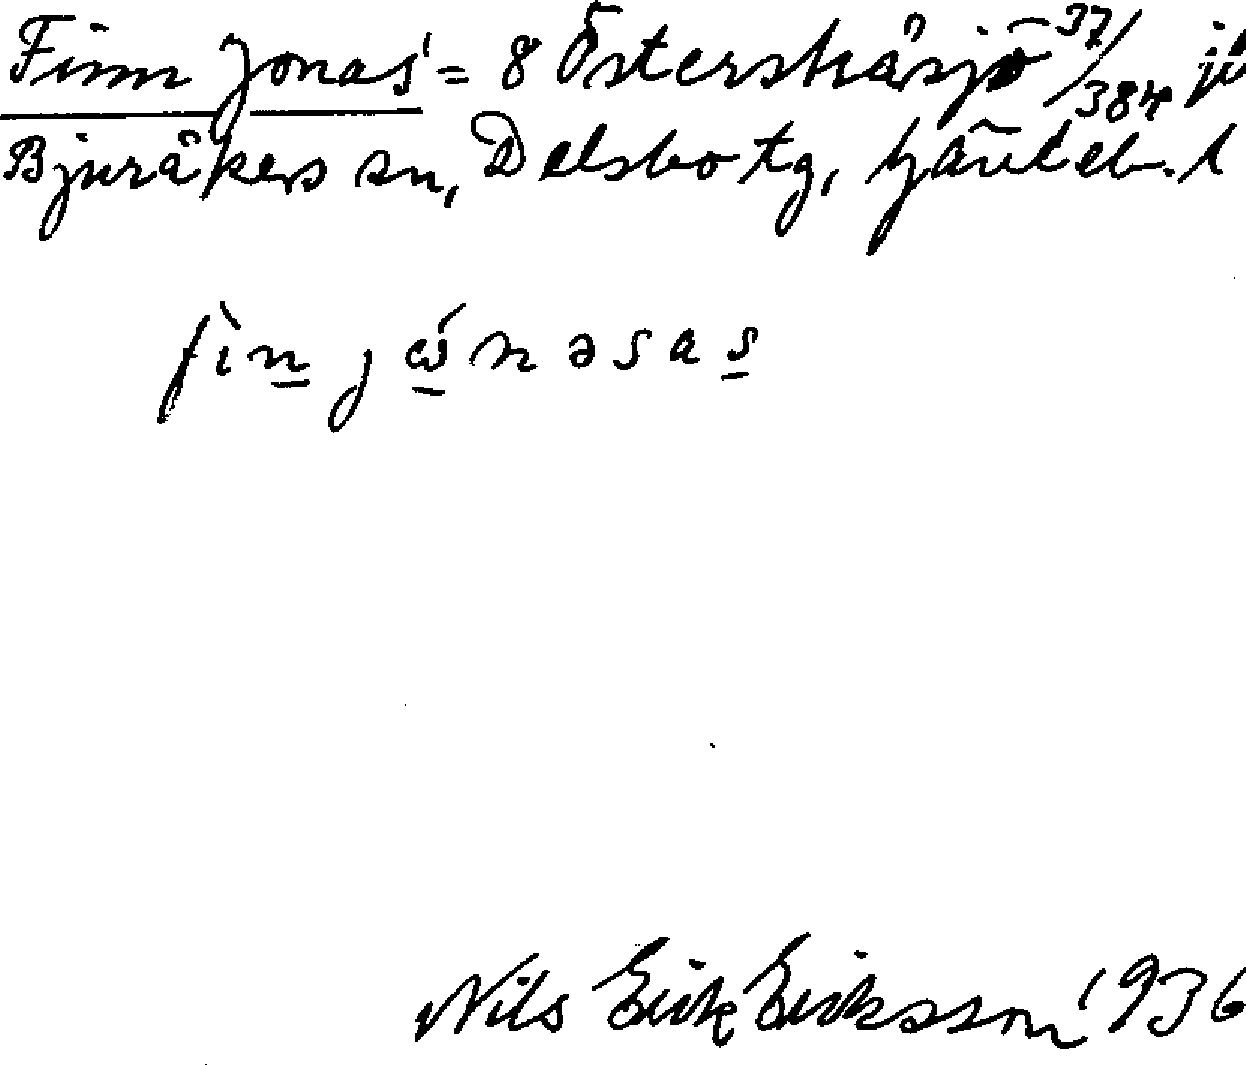 Finn Jonas' = 8 Österskåsjö 37/384
Bjuråkers sn, Delsbo tg, Gävleb. l
fìn jώnəsas
Nils Erik Eriksson 1936